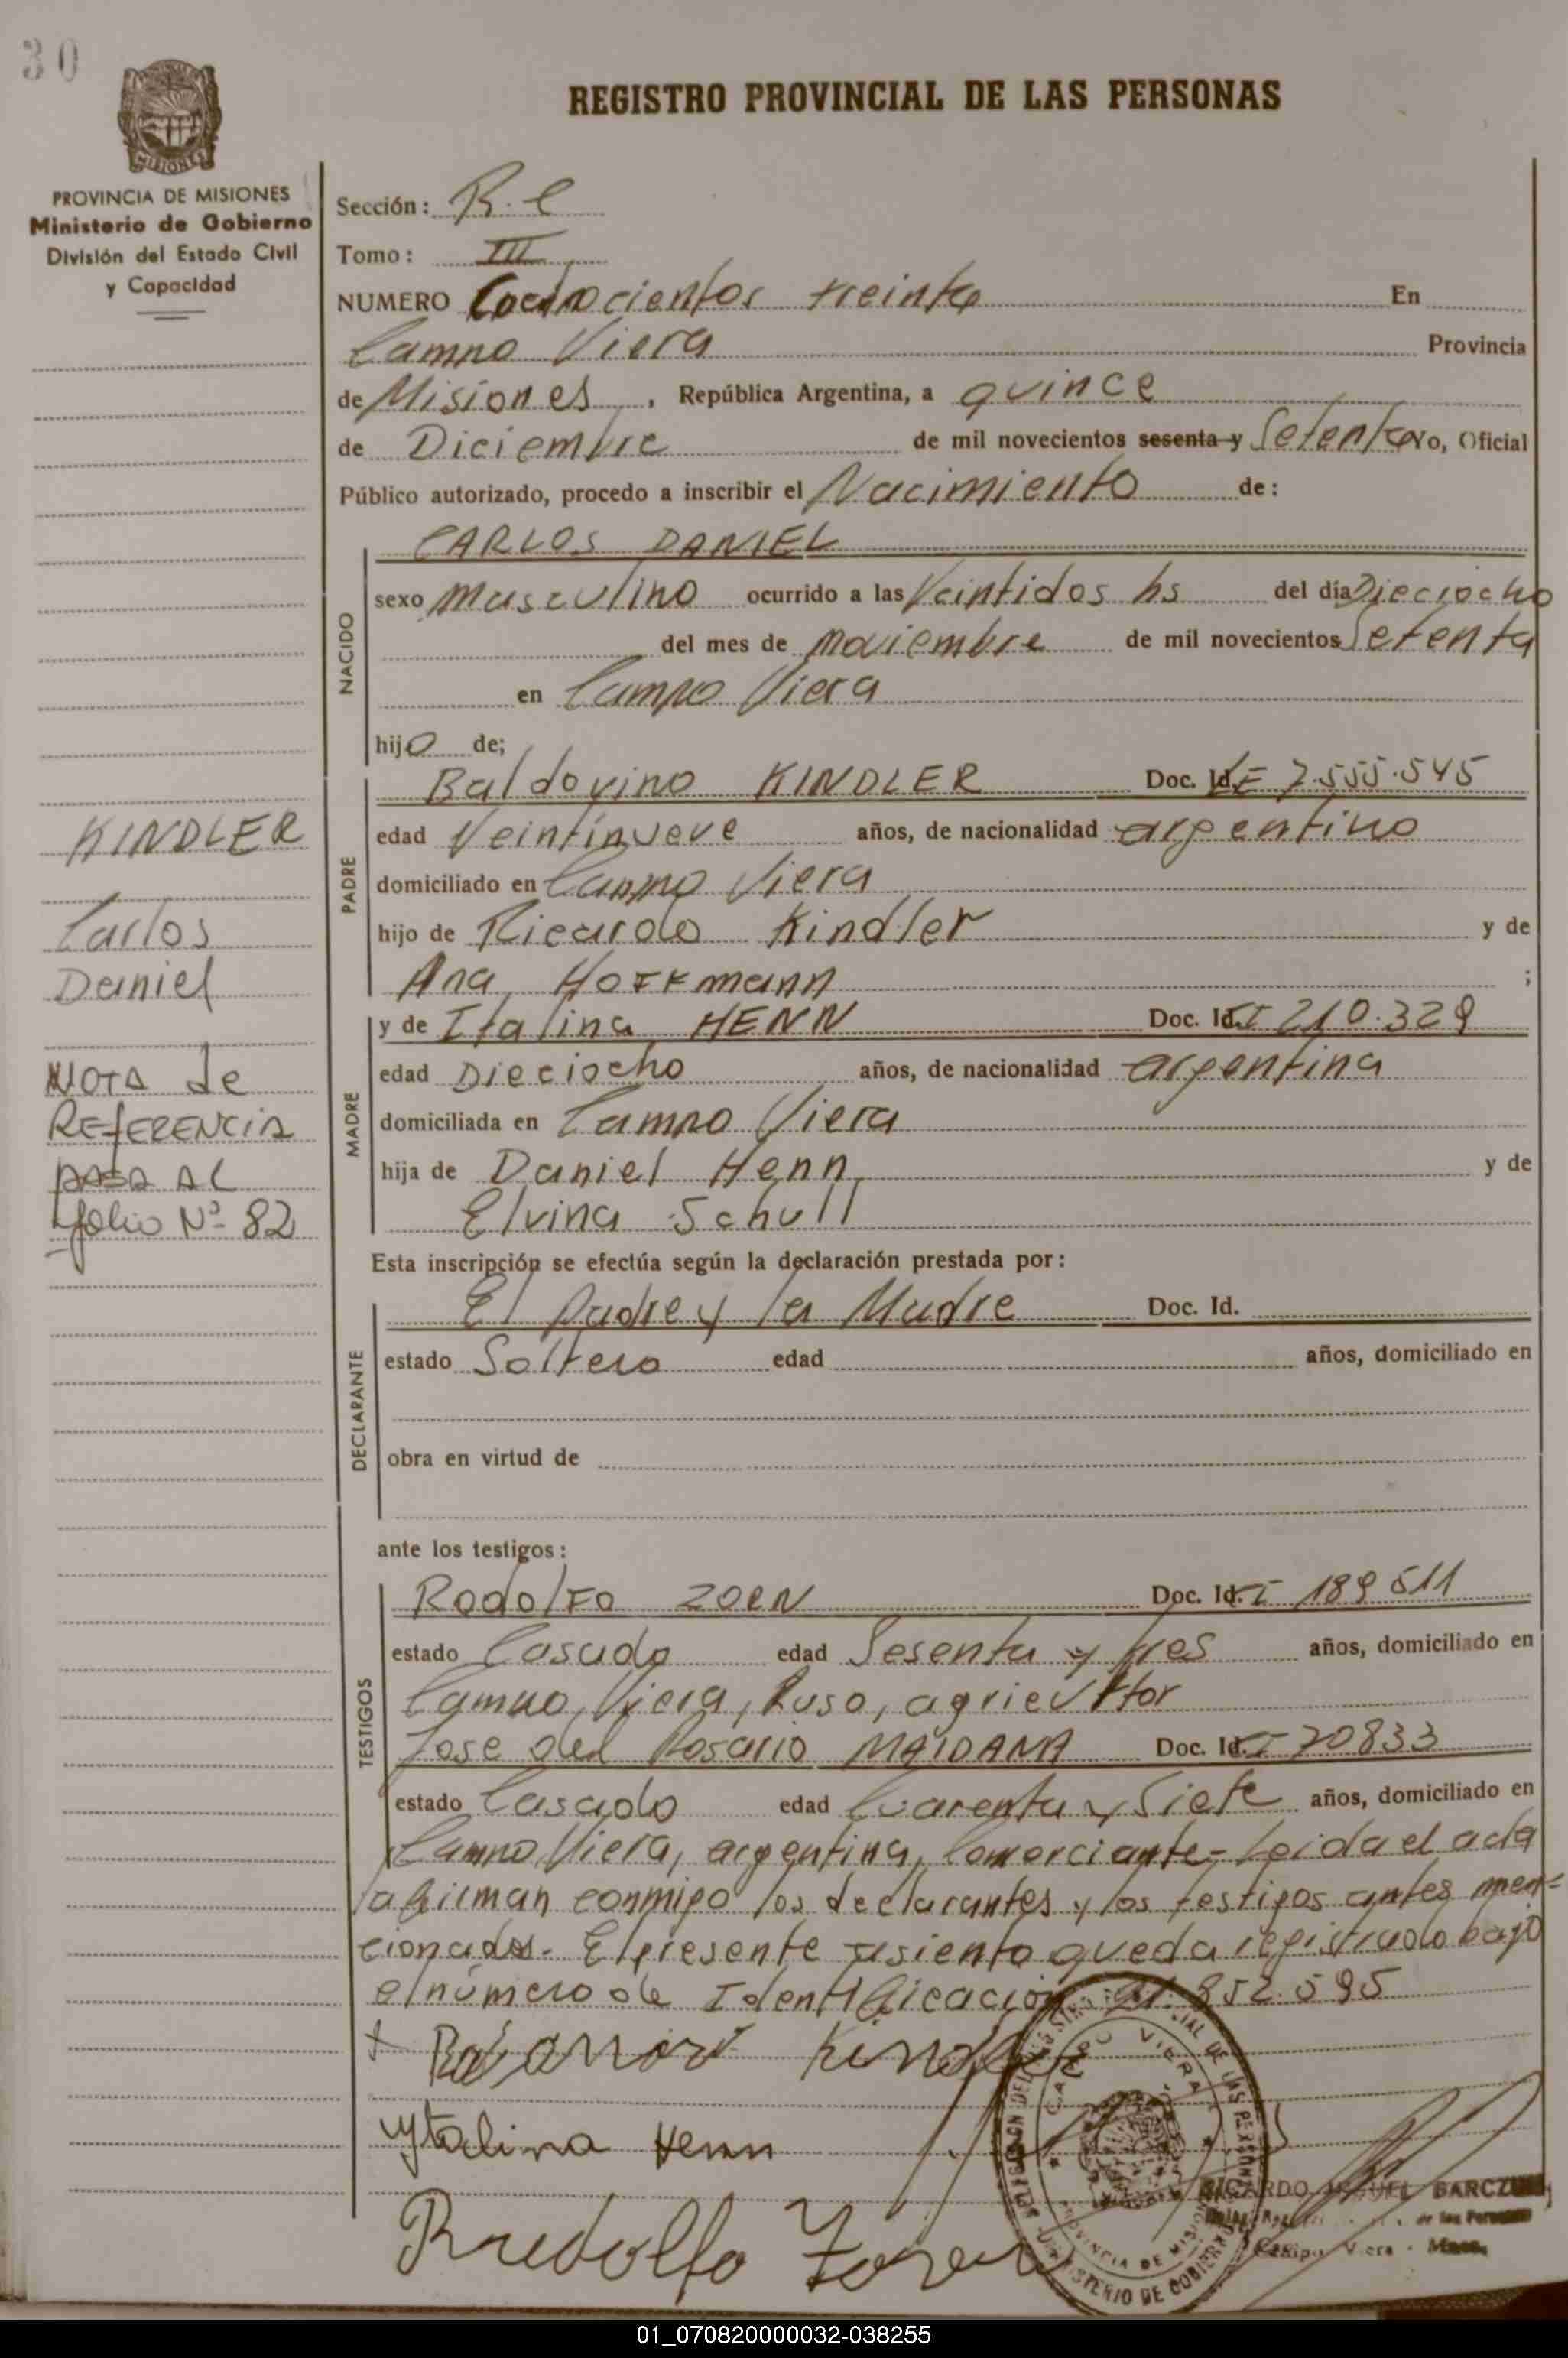 30
MISIONES
REGISTRO PROVINCIAL DE LAS PERSONAS
PROVINCIA DE MISIONES
Ministerio de Gobierno
División del Estado Civil
y Capacidad
KINDLER
Carlos
Daniel
NOTA de
REfERENCIA
PASA AL
folio Nº 82
Sección: R.C
Tomo: III
NUMERO Cuatrocientos treinta En
Campo Viera Provincia
de Misiones, República Argentina, a quince
de Diciembre de mil novecientos sesenta y Setenta Yo, Oficial
Público autorizado, procedo a inscribir el Nacimiento de:
NACIDO
CARLOS DANIEL
sexo masculino ocurrido a las Veintidos hs del día Dieciocho
del mes de noviembre de mil novecientos Setenta
en Campo Viera
hijo de;
PADRE
Baldovino KINDLER Doc. Id. LE 7.555.545
edad Veintinueve años, de nacionalidad argentino
domiciliado en Campo Viera
hijo de Ricardo Kindler y de
Ana Hoffmann ;
MADRE
y de Italina HENN Doc. Id. CI 210.329
edad Dieciocho años, de nacionalidad argentina
domiciliada en Campo Viera
hija de Daniel Henn y de
Elvina Schull
Esta inscripción se efectúa según la declaración prestada por:
DECLARANTE
El Padre y la Madre Doc. Id.
estado Soltero edad años, domiciliado en
obra en virtud de
ante los testigos:
TESTIGOS
Rodolfo ZORN Doc. Id. CI 189 511
estado Casado edad Sesenta y tres años, domiciliado en
Campo Viera, Ruso, agricultor
Jose del Rosario MAIDANA Doc. Id. CI 70833
estado Casado edad Cuarenta y Siete años, domiciliado en
Campo Viera, argentina, Comerciante- Leida el acta
la firman conmigo los declarantes y los testigos antes men-
cionados. El presente asiento queda registrado bajo
el número de Identificación 21.852.595
Kindler
Ytalina Henn
Rudolfo Zorn
CAMPO VIERA
PROVINCIA DE MISIONES
MINISTERIO DE GOBIERNO
RICARDO
Campo Viera - Mnes.
01_070820000032-038255